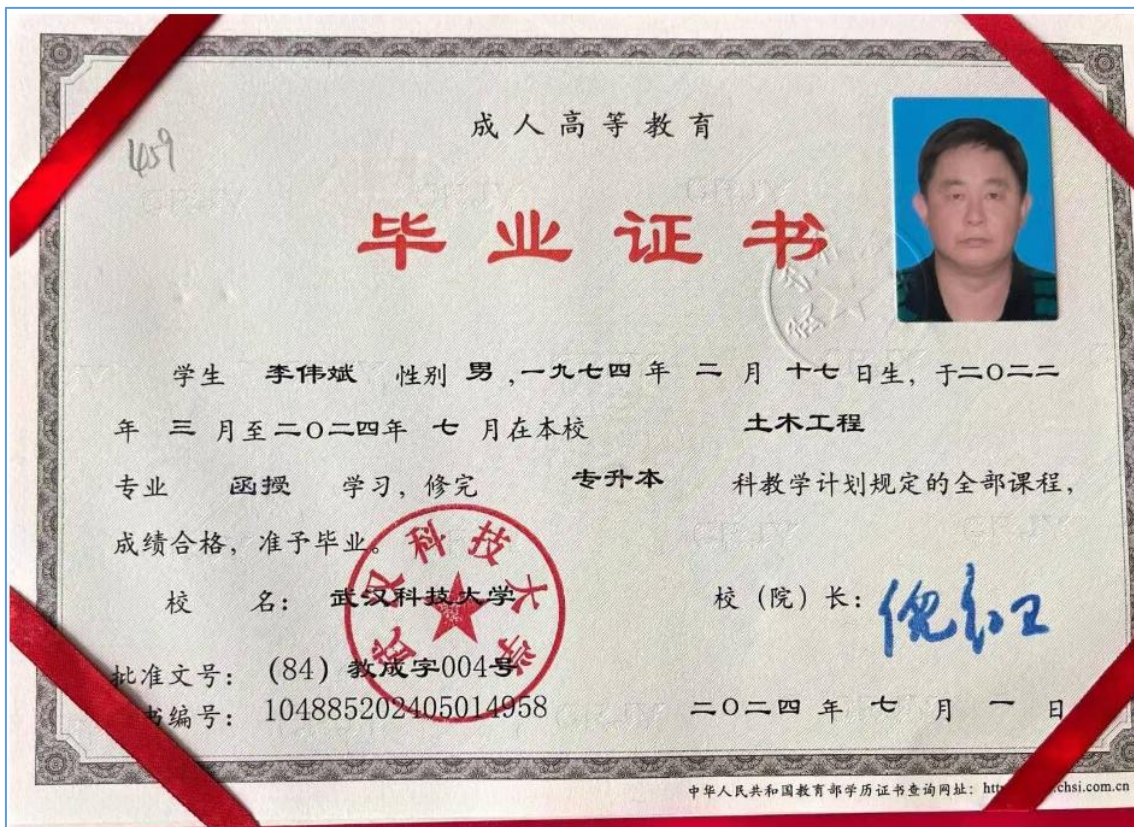 成人高等教育
459
毕业证书
学生 李伟斌 性别 男，一九七四 年 二 月 十七 日生，于二〇二二
年 三 月至二〇二四年 七 月在本校 土木工程
专业 函授 学习，修完 专升本 科教学计划规定的全部课程，
成绩合格，准予毕业。
校 名： 武汉科技大学
武汉科技大学
校（院）长：
批准文号： (84) 教成字004号
书编号： 104885202405014958
二〇二四 年 七 月 一 日
中华人民共和国教育部学历证书查询网址： htt chsi.com.cn